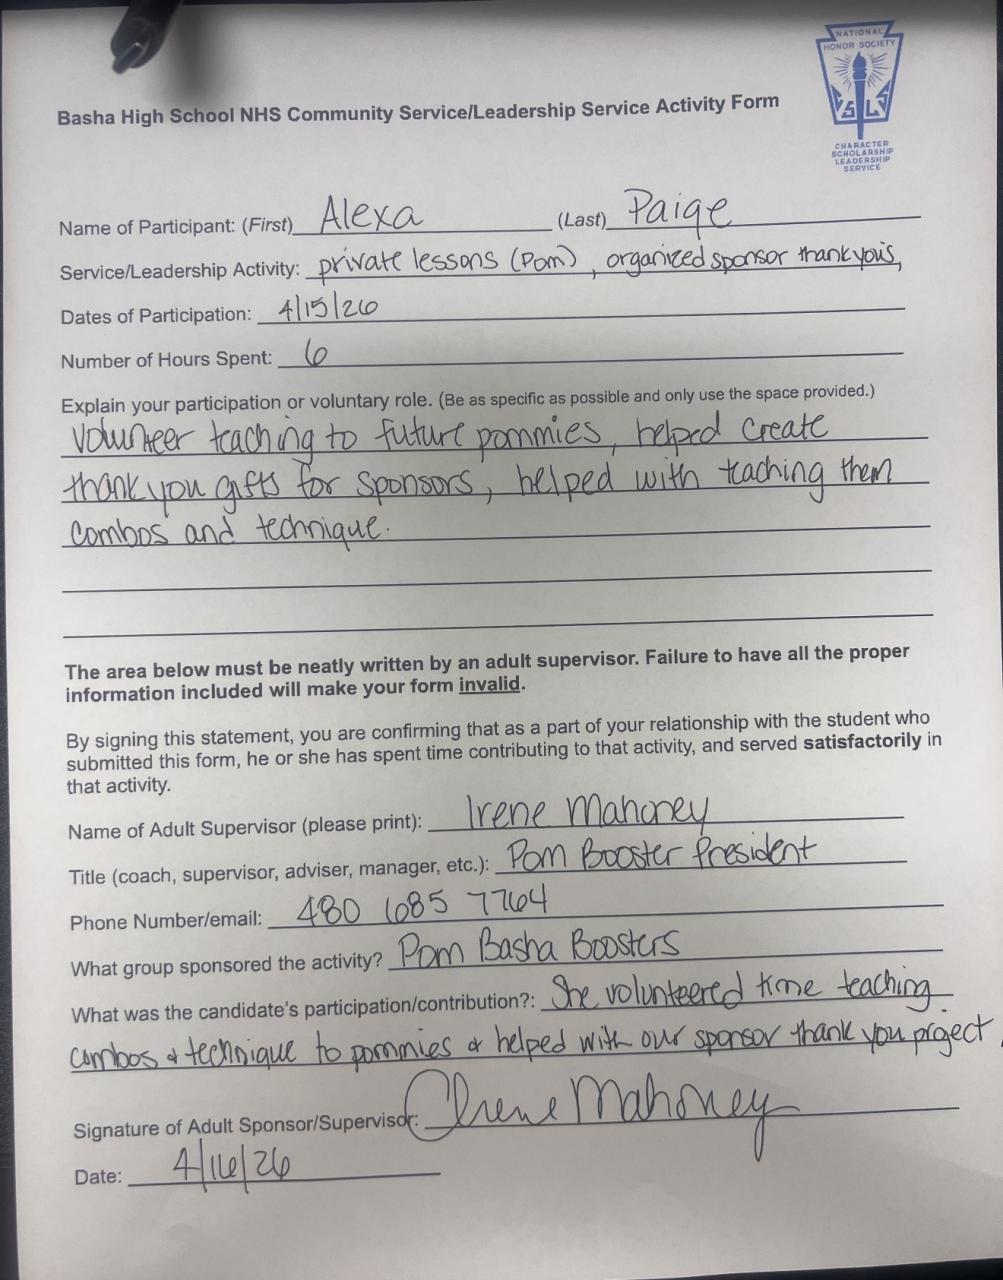 NATIONAL
HONOR SOCIETY
S L S
CHARACTER
SCHOLARSHIP
LEADERSHIP
SERVICE
Basha High School NHS Community Service/Leadership Service Activity Form
Name of Participant: (First) Alexa (Last) Paige
Service/Leadership Activity: private lessons (Pom), organized sponsor thank you's,
Dates of Participation: 4/15/26
Number of Hours Spent: 6
Explain your participation or voluntary role. (Be as specific as possible and only use the space provided.)
Volunteer teaching to future pommies, helped create
thank you gifts for sponsors, helped with teaching them
combos and technique.
The area below must be neatly written by an adult supervisor. Failure to have all the proper
information included will make your form invalid.
By signing this statement, you are confirming that as a part of your relationship with the student who
submitted this form, he or she has spent time contributing to that activity, and served satisfactorily in
that activity.
Name of Adult Supervisor (please print): Irene Mahoney
Title (coach, supervisor, adviser, manager, etc.): Pom Booster President
Phone Number/email: 480 685 7764
What group sponsored the activity? Pom Basha Boosters
What was the candidate's participation/contribution?: She volunteered time teaching
combos & technique to pommies & helped with our sponsor thank you project.
Signature of Adult Sponsor/Supervisor: Irene Mahoney
Date: 4/16/26